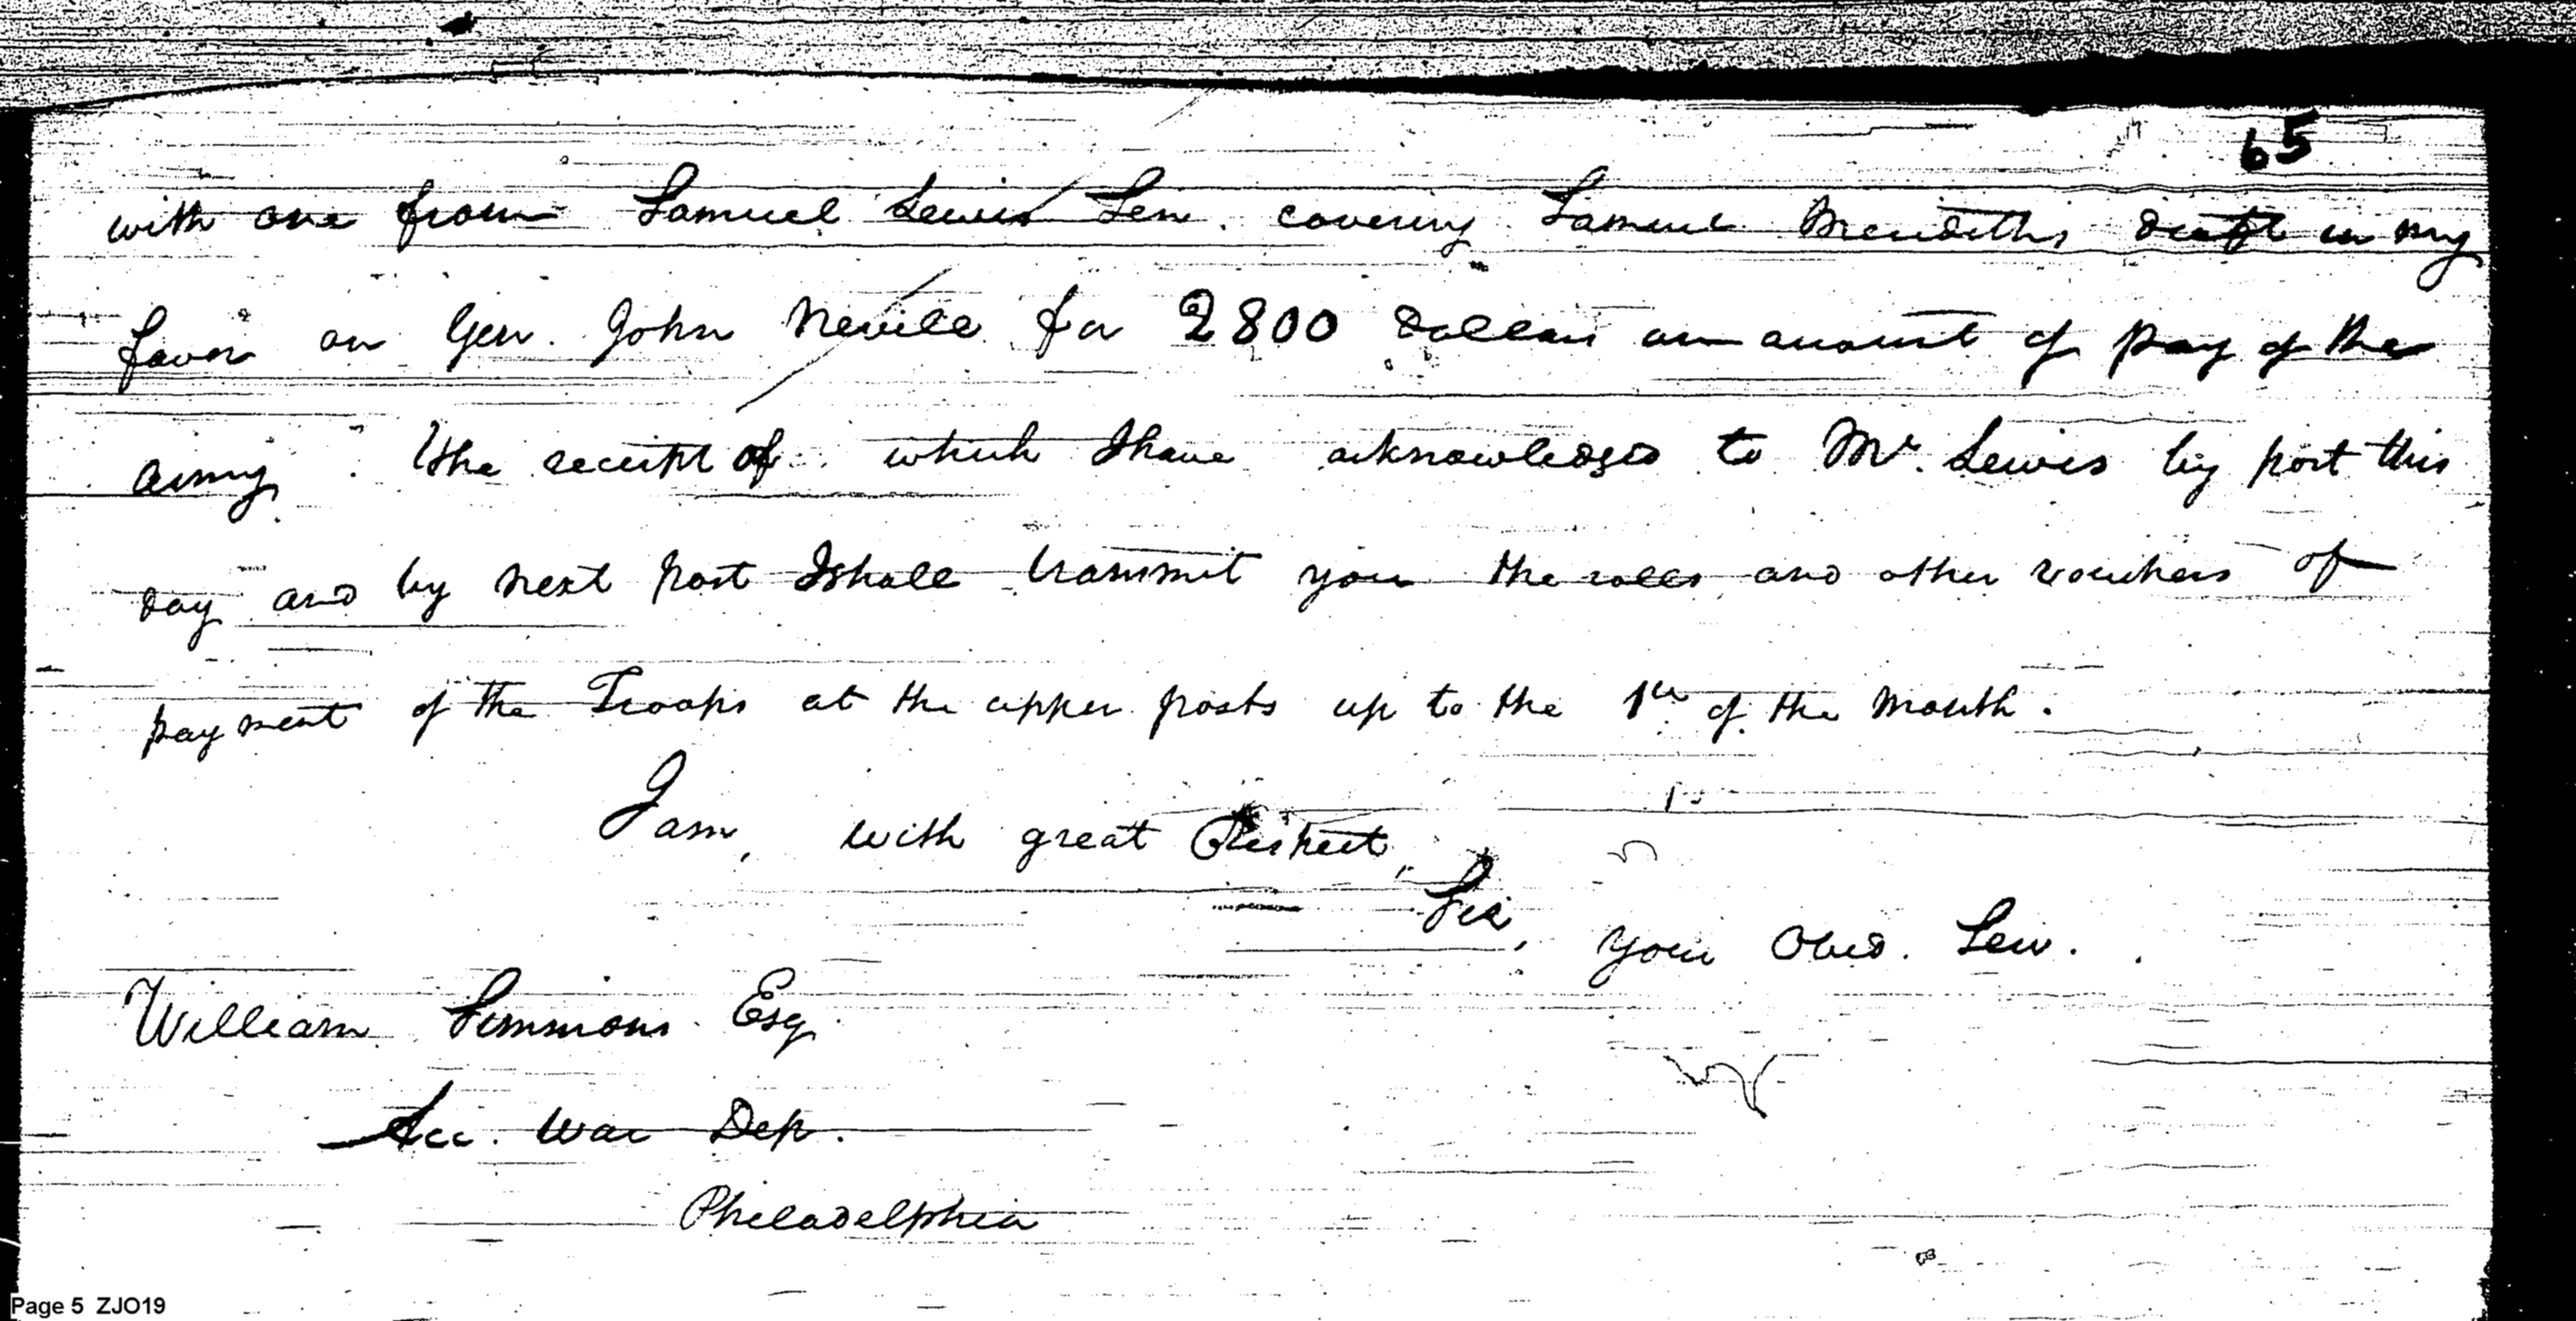 65
with one from Samuel Lewis Sen. covering Samuel Merediths draft in my
favor on Gen. John Nevill for 2800 dollars on amount of pay of the
army. The receipt of which I have acknowledged to Mr. Lewis by post this
day and by next post I shall transmit you the rolls and other vouchers of
payment of the Troops at the upper posts up to the 1st of the month.
I am, with great Respect,
Sir,
your Obed. Serv.
William Simmons Esq.
Acc. War Dep.
Philadelphia
Page 5 ZJO19